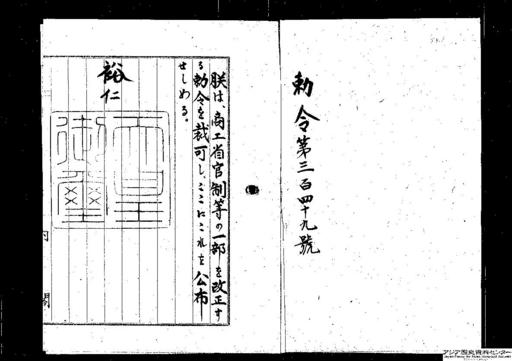 勅令第三百四十九號
朕は、商工省官制等の一部を改正す
る勅令を裁可し、ここにこれを公布
せしめる。
裕仁
天皇
御璽
内閣
アジア歴史資料センター